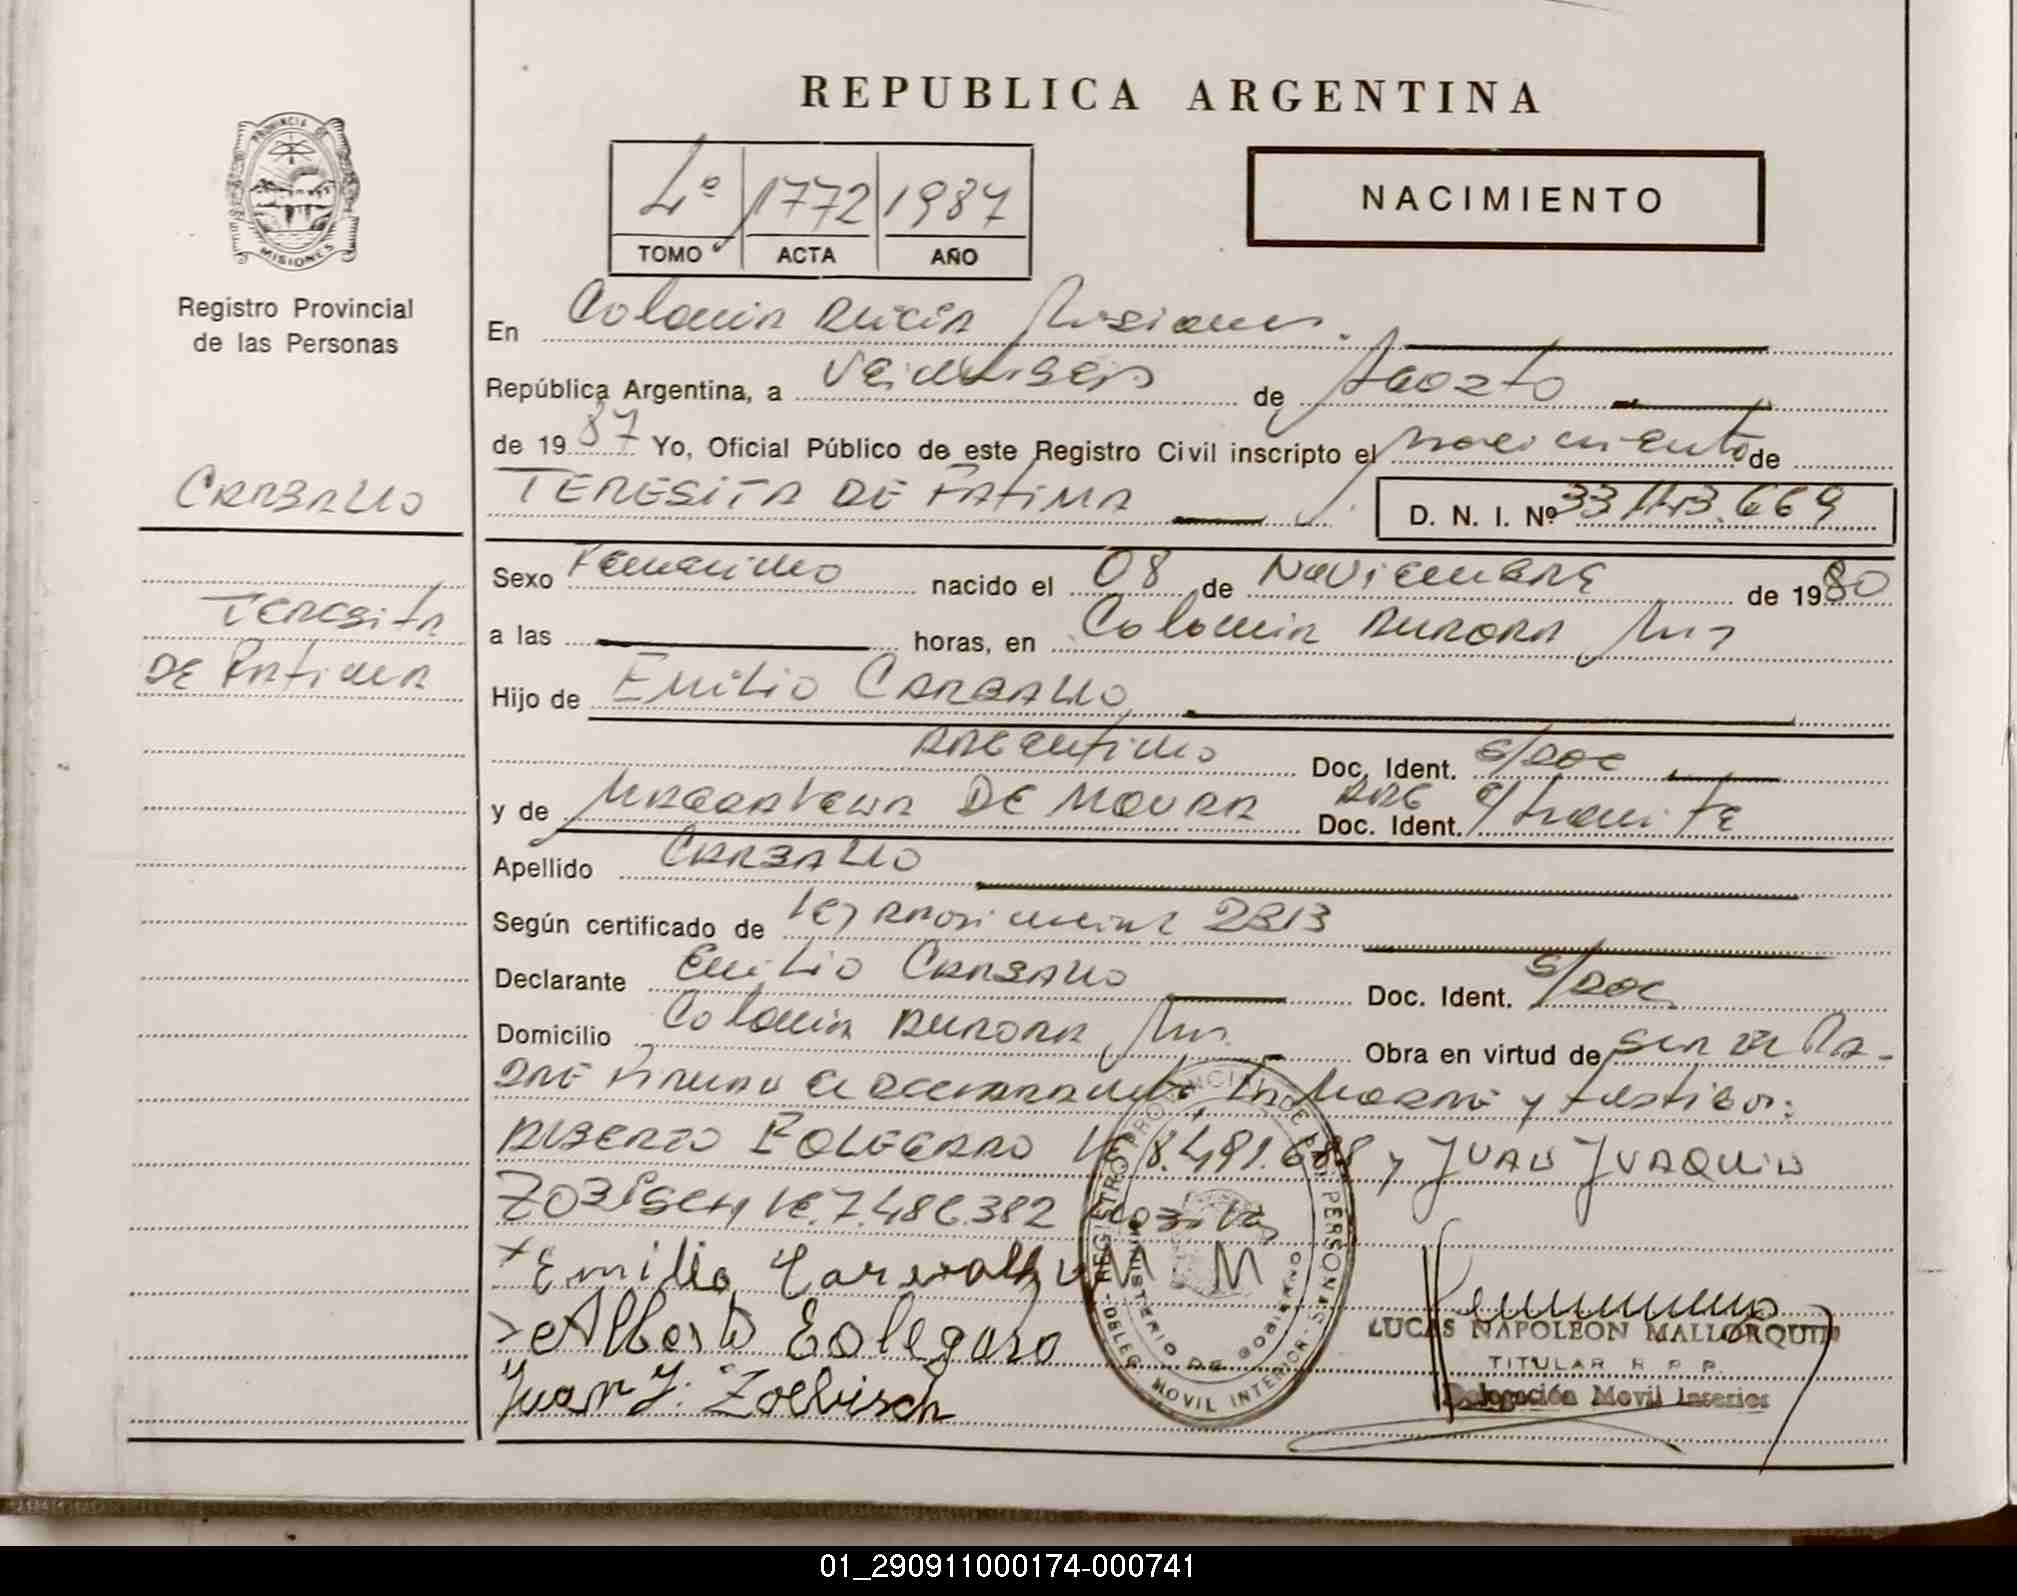 REPUBLICA ARGENTINA
PROVINCIA DE
MISIONES
4º 1772 1987
TOMO ACTA AÑO
NACIMIENTO
Registro Provincial
de las Personas
En Colonia Alicia Misiones.
República Argentina, a Veintiseis de Agosto
de 1987 Yo, Oficial Público de este Registro Civil inscripto el Nacimiento de
CARBALLO
TERESITA DE FATIMA
D. N. I. Nº
Sexo Femenino nacido el 08 de Noviembre de 1980
Teresita
DE Fatima
a las horas, en Colonia Aurora Mnes
Hijo de Emilio CARBALLO
Argentino Doc. Ident. S/Doc
y de Margarteha DE MOURA ARG Doc. Ident. e/tramite
Apellido CARBALLO
Según certificado de Ley Provincial 2813
Declarante Emilio CARBALLO Doc. Ident. S/Doc
Domicilio Colonia Aurora Mns. Obra en virtud de ser el Pa-
dre Firman el declarante la Madre y testigos:
ALBERTO EOLEGARO LE 8.491.688 y JUAN JUAQUIN
ZOBISCH, LE. 7.486.382
x Emilio M M
Alberto Eolegaro
Juan J. Zoelbisch
REGISTRO PROVINCIAL DE LAS PERSONAS
MINISTERIO DE GOBIERNO
DELEG. MOVIL INTERIOR
LUCAS NAPOLEON MALLORQUIN
TITULAR R. P. P.
Delegación Movil Interior
01_290911000174-000741